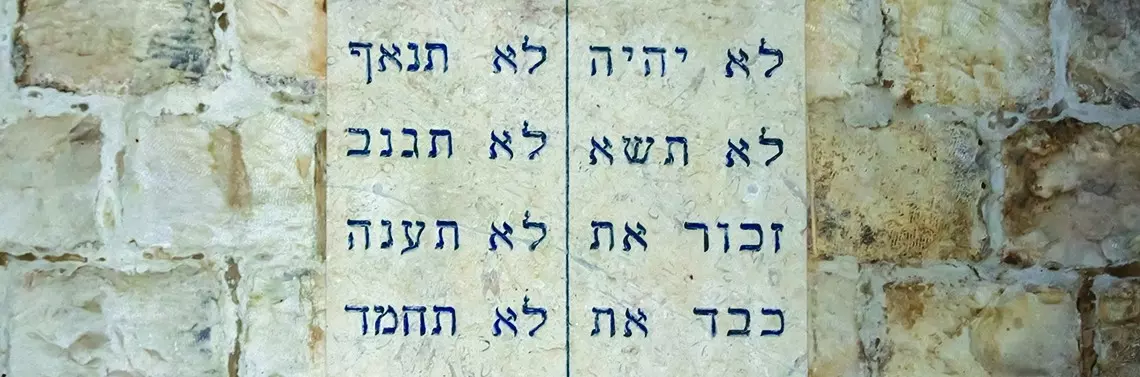 לא יהיה
לא תשא
זכור את
כבד את
לא תנאף
לא תגנב
לא תענה
לא תחמד